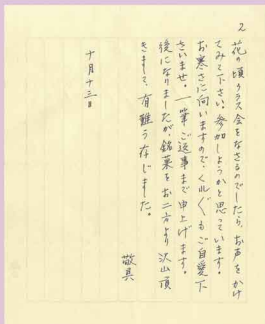 2
花の頃クラス会をなさるのでしたら、お声をかけ
てみて下さい。参加しようかと思っています。
お寒さに向いますので、くれぐれもご自愛下
さいませ。一筆ご返事まで申上げます。
後になりましたが、銘菓をお二方より沢山頂
きまして、有難う存じました。
敬具
十月十三日